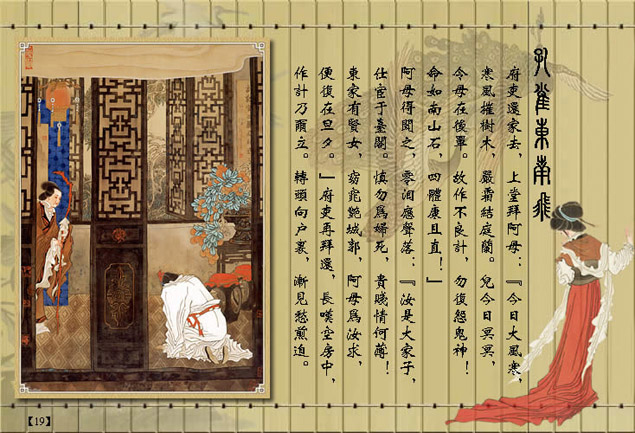 孔雀東南飛
府吏還家去，上堂拜阿母：『今日大風寒，
寒風摧樹木，嚴霜結庭蘭。兒今日冥冥，
令母在後單。故作不良計，勿復怨鬼神！
命如南山石，四體康且直！』
阿母得聞之，零淚應聲落：『汝是大家子，
仕宦于臺閣。慎勿爲婦死，貴賤情何薄！
東家有賢女，窈窕艷城郭，阿母爲汝求，
便復在旦夕。』府吏再拜還，長嘆空房中，
作計乃爾立。轉頭向户裏，漸見愁煎迫。
【19】